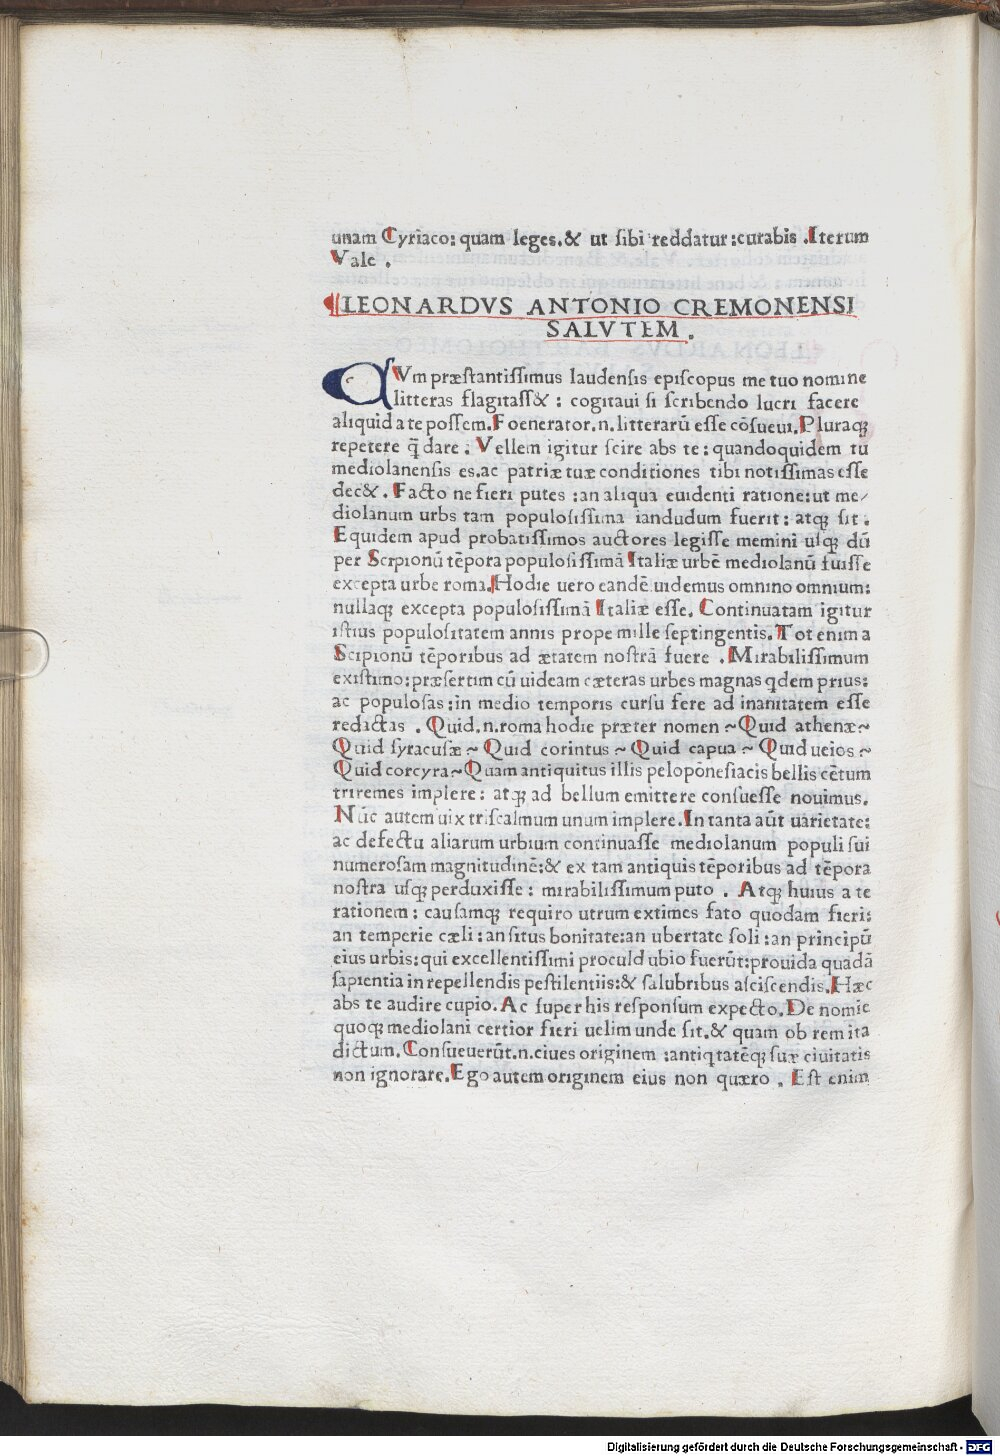 unam Cyriaco: quam leges.& ut sibi reddatur: curabis .Iterum
Vale .
LEONARDVS ANTONIO CREMONENSI
SALVTEM .
CVm præstantissimus laudensis episcopus me tuo nomine
litteras flagitass& : cogitaui si scribendo lucri facere
aliquid a te possem. Foenerator.n.litterarū esse cōsueui. Pluraqꝫ
repetere q̄ dare . Vellem igitur scire abs te: quandoquidem tu
mediolanensis es.ac patriæ tuæ conditiones tibi notissimas esse
dec& . Facto ne fieri putes :an aliqua euidenti ratione:ut me/
diolanum urbs tam populosissima iandudum fuerit: atqꝫ sit .
Equidem apud probatissimos auctores legisse memini usqꝫ dū
per Scipionū tēpora populosissimā Italiæ urbē mediolanū fuisse
excepta urbe roma. Hodie uero eandē uidemus omnino omnium:
nullaqꝫ excepta populosissimā Italiæ esse. Continuatam igitur
istius populositatem annis prope mille septingentis. Tot enim a
Scipionū tēporibus ad ætatem nostrā fuere . Mirabilissimum
existimo: præsertim cū uideam cæteras urbes magnas qdem prius:
ac populosas: in medio temporis cursu fere ad inanitatem esse
redictas . Quid.n.roma hodie præter nomen ~ Quid athenæ~
Quid syracusæ ~ Quid corintus ~ Quid capua ~ Quid ueios ~
Quid corcyra~ Quam antiquitus illis pelopōnesiacis bellis cētum
triremes implere: atqꝫ ad bellum emittere consuesse nouimus.
Nūc autem uix triscalmum unum implere. In tanta aūt uarietate:
ac defectu aliarum urbium continuasse mediolanum populi sui
numerosam magnitudinē:& ex tam antiquis tēporibus ad tēpora
nostra usqꝫ perduxisse : mirabilissimum puto . Atqꝫ huius a te
rationem : causamqꝫ requiro utrum extimes fato quodam fieri:
an temperie cæli: an situs bonitate:an ubertate soli :an principū
eius urbis: qui excellentissimi proculd ubio fuerūt:prouida quadā
sapientia in repellendis pestilentiis:& salubribus asciscendis. Hæc
abs te audire cupio. Ac super his responsum expecto. De nomie
quoqꝫ mediolani certior fieri uelim unde sit.& quam ob rem ita
dictum. Consueuerūt.n.ciues originem :antiqtatēqꝫ suæ ciuitatis
non ignorare. Ego autem originem eius non quæro . Est enim
Digitalisierung gefördert durch die Deutsche Forschungsgemeinschaft - DFG